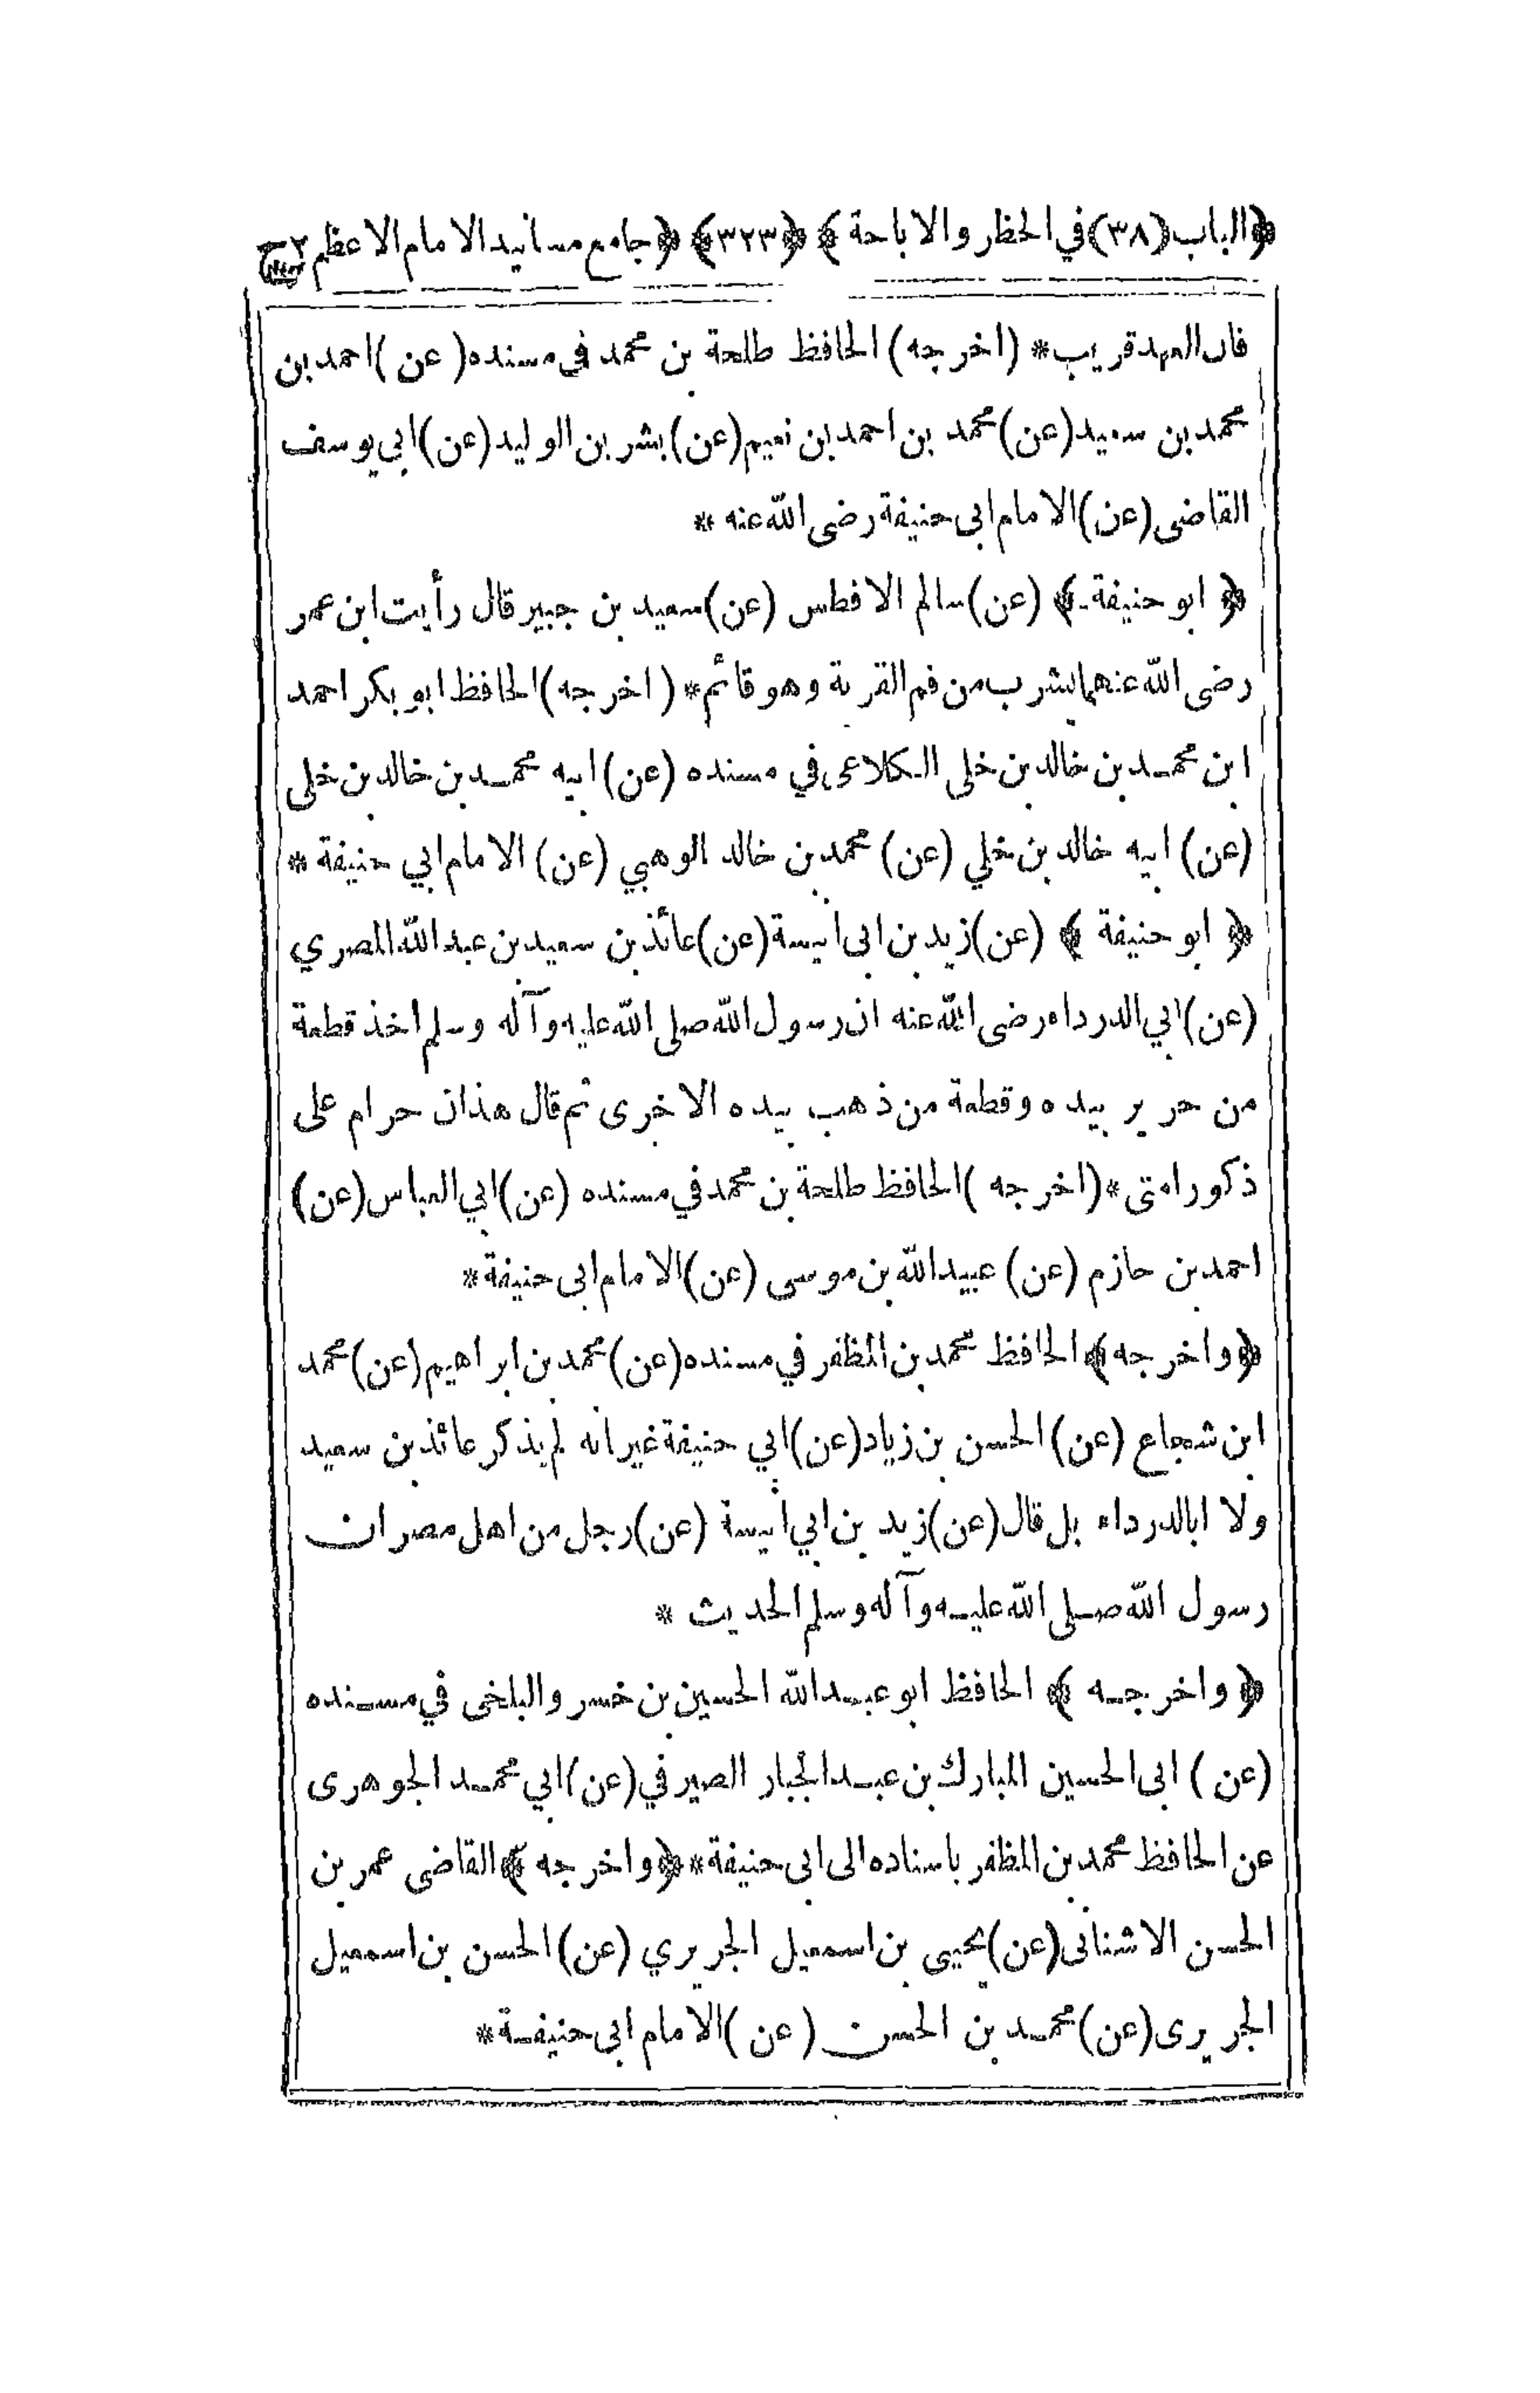 ﴿الباب(٣٨)في الحظر والاباحة﴾ ﴿٣٢٣﴾ ﴿جامع مسانيد الامام الاعظم ج٢﴾
فان العهد قريب * (اخرجه) الحافظ طلحة بن محمد في مسنده (عن) احمد بن
محمد بن سعيد (عن) محمد بن احمد بن نعيم (عن) بشر بن الوليد (عن) ابي يوسف
القاضى (عن) الامام ابى حنيفة رضى الله عنه *
﴿ ابو حنيفة ﴾ (عن) سالم الافطس (عن) سعيد بن جبير قال رأيت ابن عمر
رضى الله عنهما يشرب من فم القربة وهو قائم * (اخرجه) الحافظ ابو بكر احمد
ابن محمد بن خالد بن خلى الكلاعى في مسنده (عن) ابيه محمد بن خالد بن خلى
(عن) ابيه خالد بن خلي (عن) محمد بن خالد الوهبي (عن) الامام ابي حنيفة *
﴿ ابو حنيفة ﴾ (عن) زيد بن ابى انيسة (عن) عائذ بن سعيد بن عبد الله المصري
(عن) ابي الدرداء رضى الله عنه ان رسول الله صلى الله عليه وآله وسلم اخذ قطعة
من حرير بيده وقطعة من ذهب بيده الاخرى ثم قال هذان حرام على
ذكور امتى * (اخرجه) الحافظ طلحة بن محمد في مسنده (عن) ابي العباس (عن)
احمد بن حازم (عن) عبيد الله بن موسى (عن) الامام ابى حنيفة *
﴿واخرجه﴾ الحافظ محمد بن المظفر في مسنده (عن) محمد بن ابراهيم (عن) محمد
ابن شجاع (عن) الحسن بن زياد (عن) ابي حنيفة غير انه لم يذكر عائذ بن سعيد
ولا ابا الدرداء بل قال (عن) زيد بن ابي انيسة (عن) رجل من اهل مصر ان
رسول الله صلى الله عليه وآله وسلم الحديث *
﴿ واخرجه ﴾ الحافظ ابو عبد الله الحسين بن خسرو البلخى في مسنده
(عن) ابى الحسين المبارك بن عبد الجبار الصير في (عن) ابي محمد الجوهرى
عن الحافظ محمد بن المظفر باسناده الى ابى حنيفة * ﴿واخرجه﴾ القاضى عمر بن
الحسن الاشنانى (عن) يحيى بن اسمعيل الجريري (عن) الحسن بن اسمعيل
الجريرى (عن) محمد بن الحسن (عن) الامام ابى حنيفة *